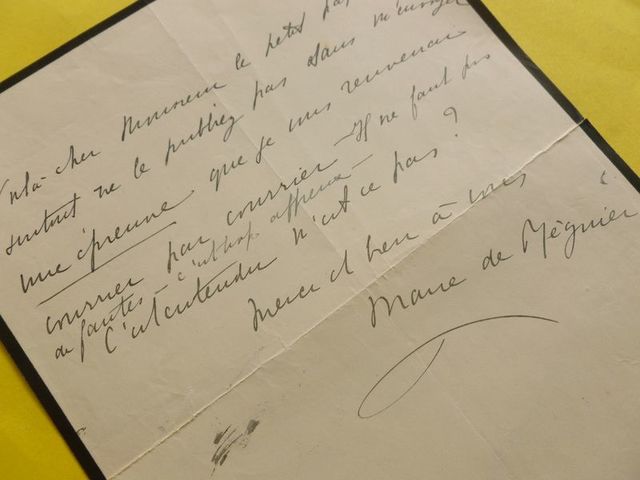 Voilà cher Monsieur le petit
surtout ne le publiez pas sans m'envoyer
une épreuve que je vous renverrai
courrier par courrier - Il ne faut pas
de fautes - c'est trop affreux -
C'est entendu n'est ce pas ?
Merci et bien à vous
Marie de Régnier